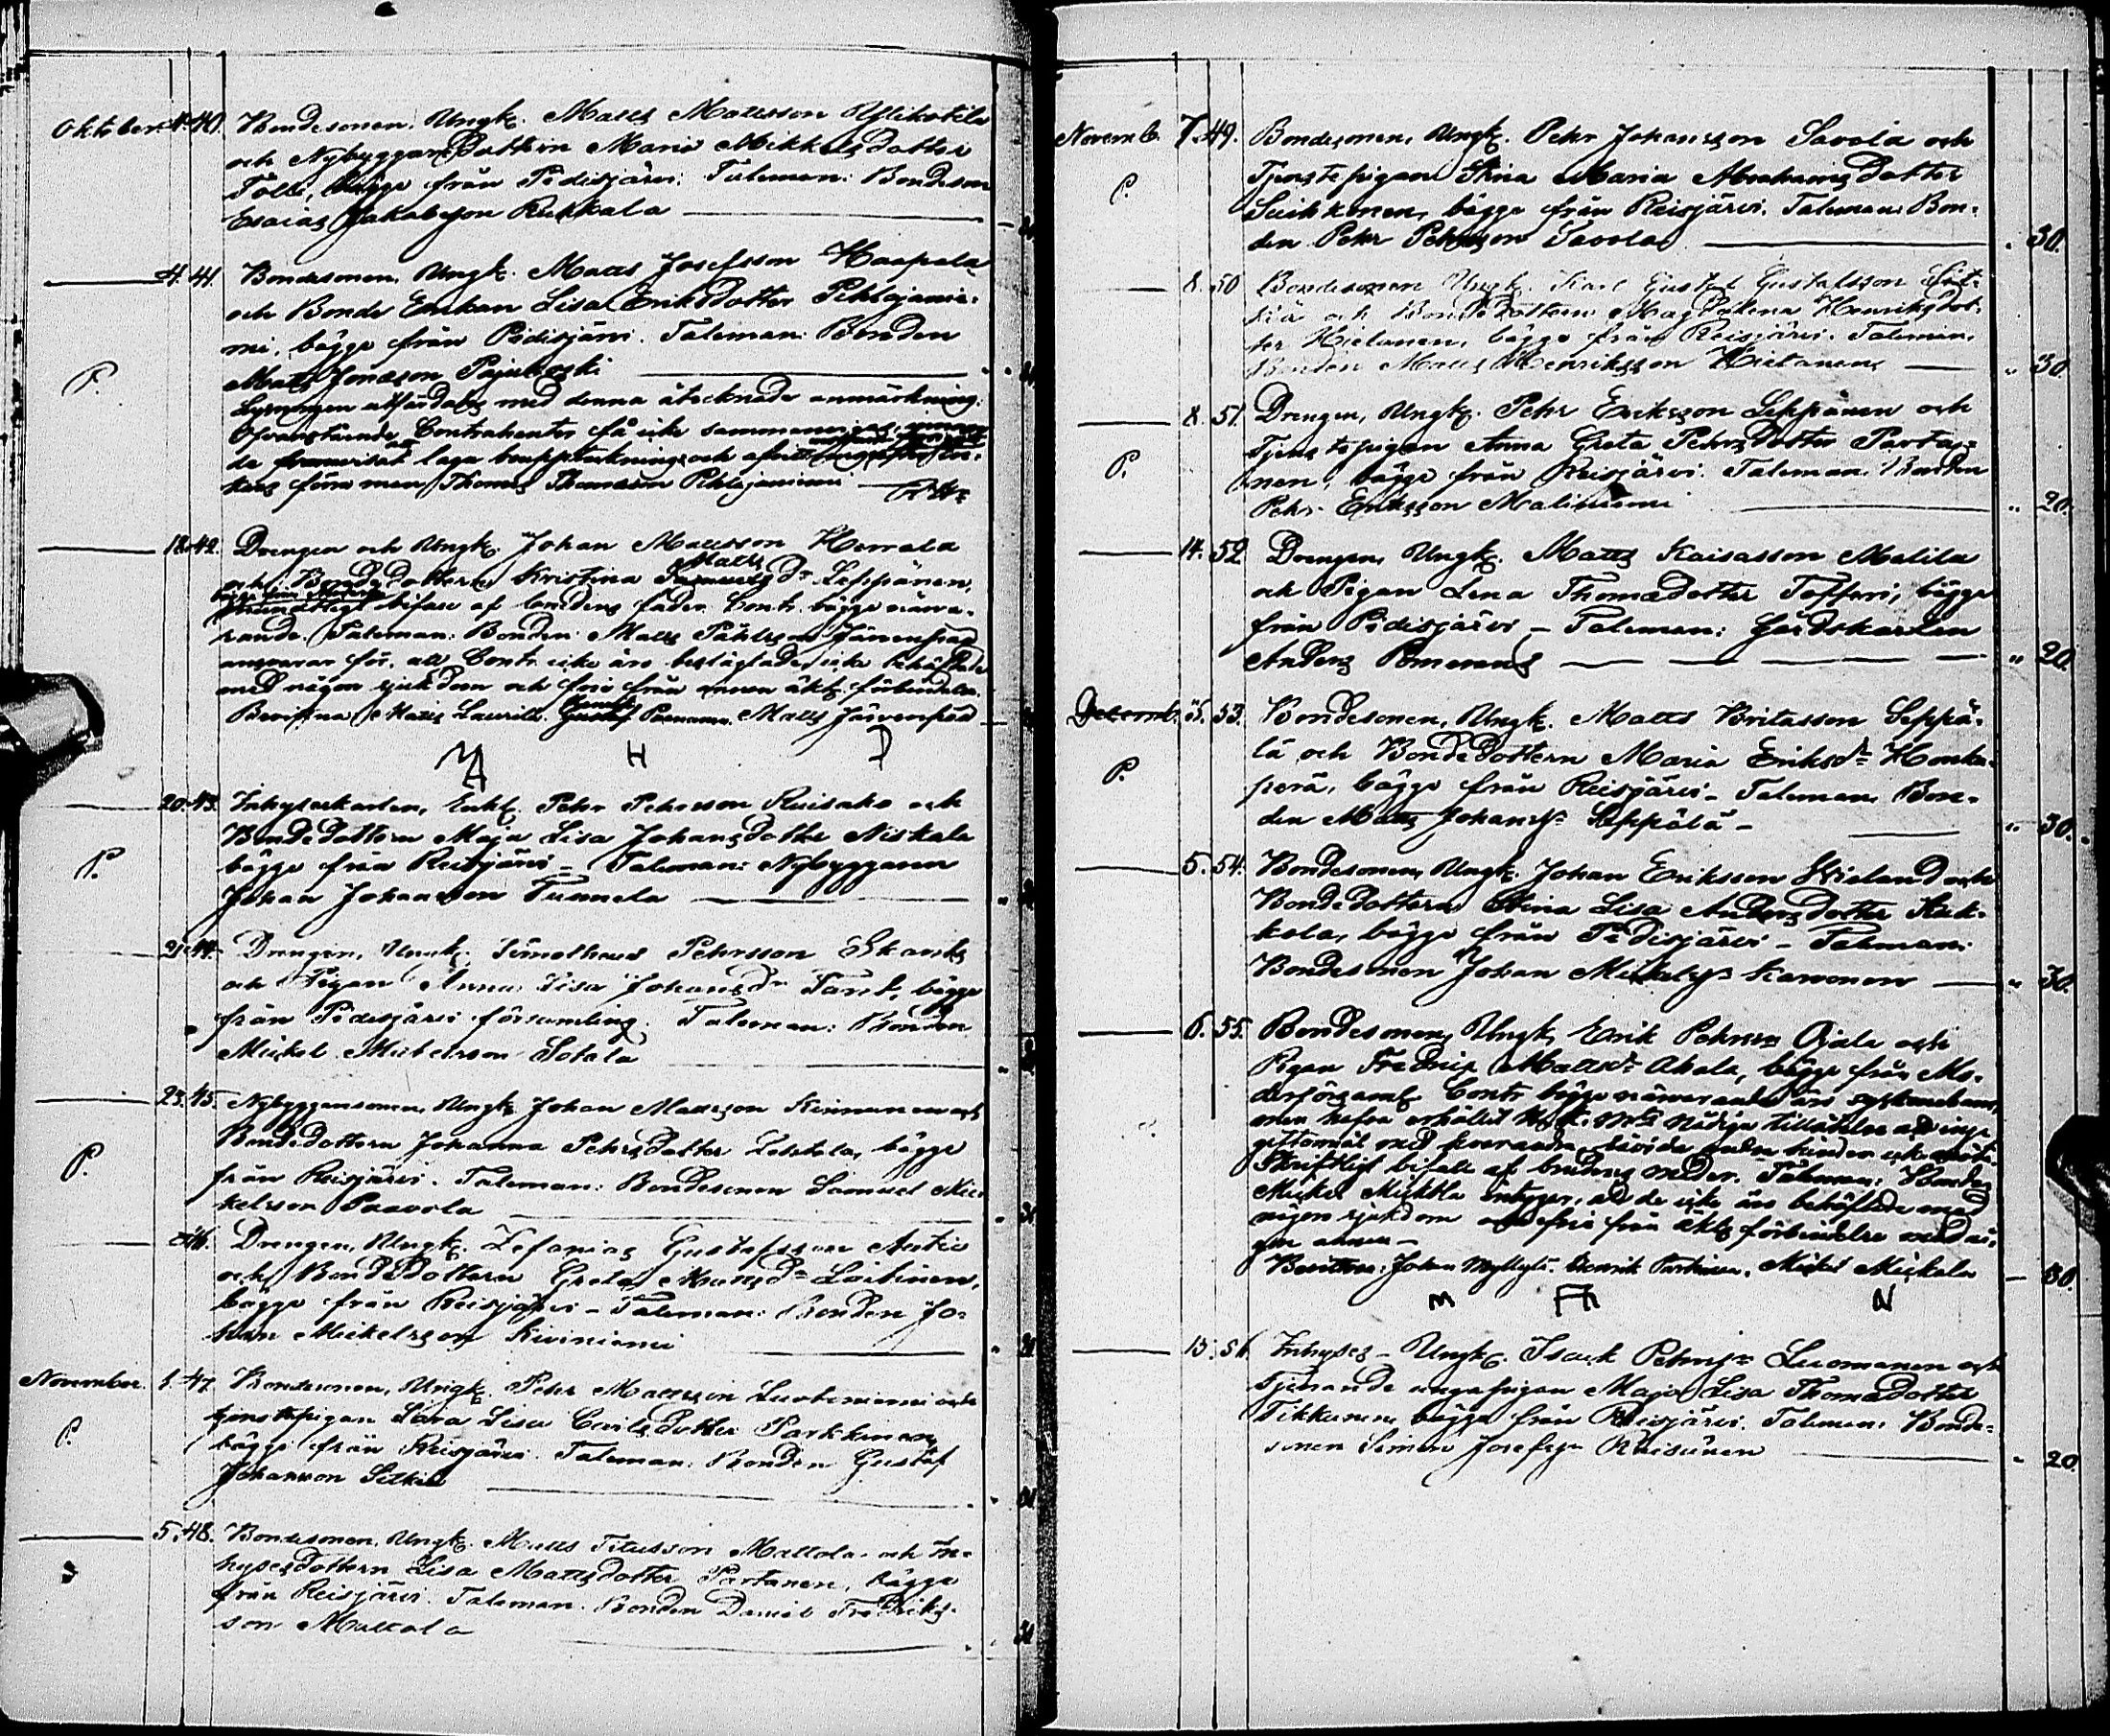 Oktober 4. 40. Bondesonen, Ungk. Matts Mattsson Ylikotila
och Nybyggare Dottren Maria Mikkelsdotter
Tölli, bägge från Pidisjärvi. Taleman: Bondeson
Esaias Jakobsson Ruskala
4. 41. Bondesonen, Ungk. Matts Josefsson Haapala
och Bonde Enkan Lisa Eriksdotter Pihlajanie-
mi, bägge från Pidisjärvi. Taleman: Bonden
P. Matts Jonasson Pajukoski
Lysningen utfärdades med denna åtecknade anmärkning:
Ofvanstående Contrahenter få icke sammanvigas
laga bouppteckning och
Thomas Thomasson Pihlajaniemi
18. 42. Drengen och Ungk. Johan Mattsson Herrala
och Bondedottern Kristina Matts dr Leppänen,
bifall af brudens fader. Contr. bägge närva-
rande. Taleman: Bonden Matts Påhlsson Järvenpää
ansvarar för, att Contr. icke äro beslägtade, icke behäftade
med någon sjukdom och fria från annan äkt. förbindelse.
Bevittna Matts Laurila. Henrik Matts Järvenpää
20. 43. Inhysekarlen, Enkl. Pehr Pehrsson Ruisaho och
Bondedottern Maja Lisa Johansdotter Niskala
P. bägge från Reisjärvi - Taleman: Nybyggaren
Johan Johansson Tunnela
21. 44. Drengen, Ungk. Timotheus Pehrsson
och Pigan Anna Lisa Johansdr bägge
från Pidisjärvi församling. Taleman: Bonden
Mickel Mickelsson Sotala
23. 45. Nybyggaresonen, Ungk. Johan Mattsson Kinnunen och
Bondedottern Johanna Pehrsdotter bägge
P. från Reisjärvi. Taleman: Bondesonen Samuel Mic-
kelsson Paavola
46. Drengen, Ungk. Zefanias Gustafsson
och Bondedottern Greta Mattsdr Laitinen,
bägge från Reisjärvi - Taleman: Bonden Jo-
han Mickelsson Kiviniemi
November. 1. 47. Bondesonen, Ungk. Pehr Mattsson Luotoniemi och
tjenstepigan Sara Lisa Carlsdotter Parkkinen
P. bägge från Reisjärvi. Taleman: Bonden Gustaf
Johansson
5. 48. Bondesonen, Ungk. Matts Titusson Mattola och In-
hysesdottern Lisa Mattsdotter Partanen, bägge
från Reisjärvi. Taleman. Bonden Daniel Fredriks-
son Mattola
Novemb. 7. 49. Bondesonen, Ungk. Pehr Johansson Savola och
P. Tjenstepigan Stina Maria Abrahamsdotter
Suihkonen, bägge från Reisjärvi. Taleman: Bon-
den Pehr Pehrsson Savola 30.
8. 50 Bondesonen Ungk. Karl Gustaf Gustafsson
och Bondedottern Magdalena Henriksdot-
ter Hietanen, bägge från Reisjärvi. Taleman.
Bonden Matts Henriksson Hietanen 30
8. 51. Drengen, Ungk. Pehr Eriksson Leppänen och
P. Tjenstepigan Anna Greta Pehrsdotter Parta-
nen, bägge från Reisjärvi. Taleman: Bonden
Pehr Eriksson Maliniemi 20.
14. 52 Drengen, Ungk. Matts Kaisasson Malila
och Pigan Lena Thomædotter Tofferi, bägge
från Pidisjärvi - Taleman: Gårdskarlen
Anders Pomerans 20.
Decemb. 5. 53. Bondesonen, Ungk. Matts Britasson Seppä-
lä och Bondedottern Maria Eriksdr Honka-
P. perä, bägge från Reisjärvi - Taleman Bon-
den Matts Johanss. Seppälä - 30.
5. 54. Bondesonen, Ungk. Johan Eriksson och
Bondedottern Stina Lisa Andersdotter Kuk-
kola, bägge från Pidisjärvi - Taleman:
Bondesonen Johan Mickelss. 30.
6. 55. Bondesonen, Ungk. Erik Pehrsson Ojala och
Pigan Fredrika Mattsdr Ahola, bägge från Mo-
derförsaml. Contr. bägge närvarande äro syskonebarn,
men hafva erhållit H. K. M:ts Nådiga tillåtelse att ingå
giftermål med hvarandra, såvida andra hinder icke möta.
Skriftligt bifall af brudens moder. Taleman: Bonden
Mickel Mickola intygar, att de icke äro behäftade med
någon sjukdom och fria från äkta förbindelse med nå-
gon annan -
Bevittna: Johan Myllylä Henrik Mickel Mickola 30.
13. 56 Inhyses - Ungk. Isak Pehrss. Luomanen och
tjenande ungapigan Maja Lisa Thomædotter
Tikkanen, bägge från Reisjärvi. Taleman: Bonde-
sonen Simon Josefss. 20.